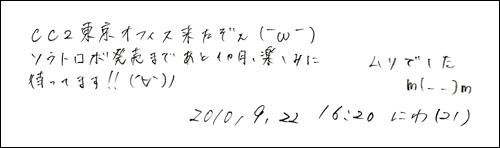 CC2東京オフィス来たぞぇ(-ω-)
ソラトロボ発売まであと1ヵ月、楽しみに
待ってます!!(´∀`)ノ
ムリでした
m(_ _)m
2010, 9, 22 16:20 にわ(21)